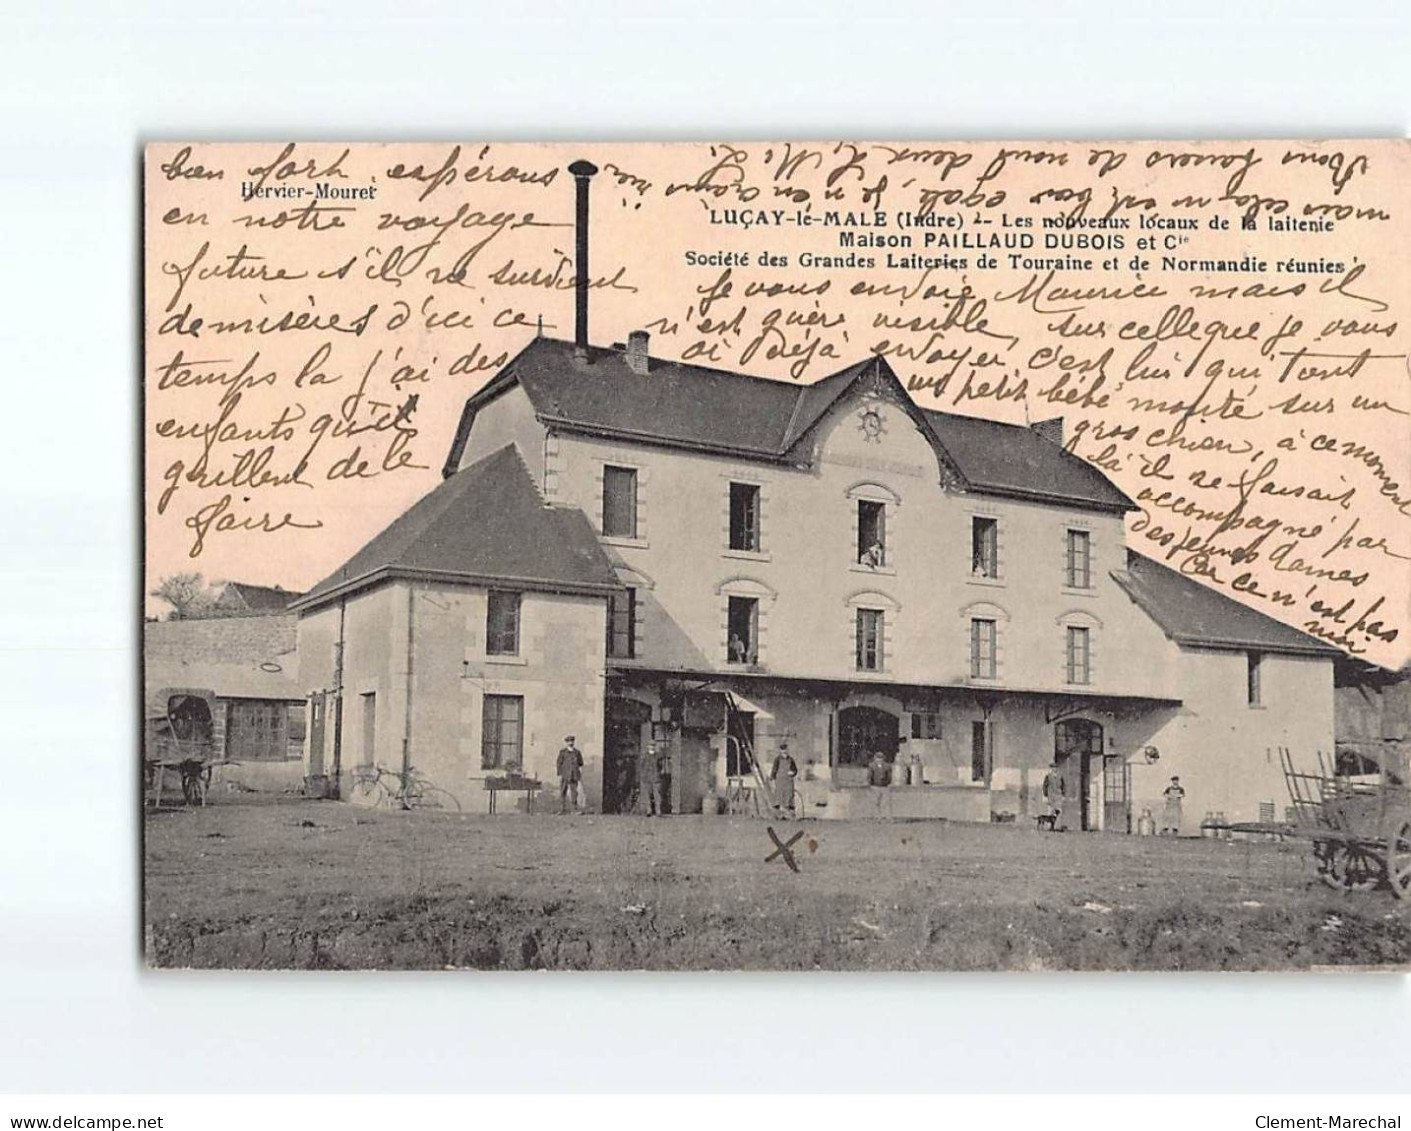 bien fort. espérons
Hervier-Mouret
en notre voyage
future s'il ne survient
de misères d'ici ce
temps la j'ai des
enfants qui
grillent de le
faire
LUÇAY-le-MALE (Indre) -- Les nouveaux locaux de la laiterie
Maison PAILLAUD DUBOIS et Cie
Société des Grandes Laiteries de Touraine et de Normandie réunies
Je vous envoie Maurice mais il
n'est guère visible, sur celle que je vous
ai déjà envoyer c'est lui qui tant
un petit bébé monté sur un
gros chien, à ce moment
là il ne faisait
accompagné par
des jeunes dames
car ce n'est pas
mais cela m'est bien égale, je n'en crains rien
www.delcampe.net
Clement-Marechal